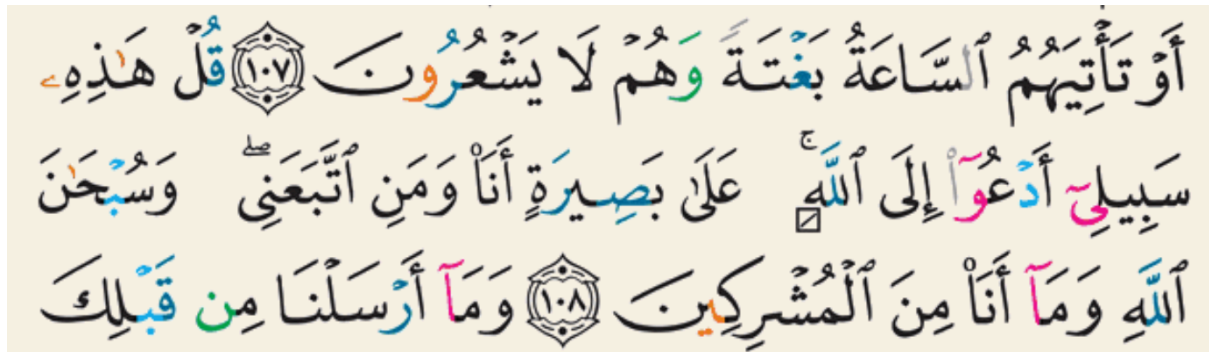 أَوْ تَأْتِيَهُمُ ٱلسَّاعَةُ بَغْتَةً وَهُمْ لَا يَشْعُرُونَ ١٠٧ قُلْ هَٰذِهِۦ
سَبِيلِىٓ أَدْعُوٓا۟ إِلَى ٱللَّهِ ۚ عَلَىٰ بَصِيرَةٍ أَنَا۠ وَمَنِ ٱتَّبَعَنِى ۖ وَسُبْحَٰنَ
ٱللَّهِ وَمَآ أَنَا۠ مِنَ ٱلْمُشْرِكِينَ ١٠٨ وَمَآ أَرْسَلْنَا مِن قَبْلِكَ